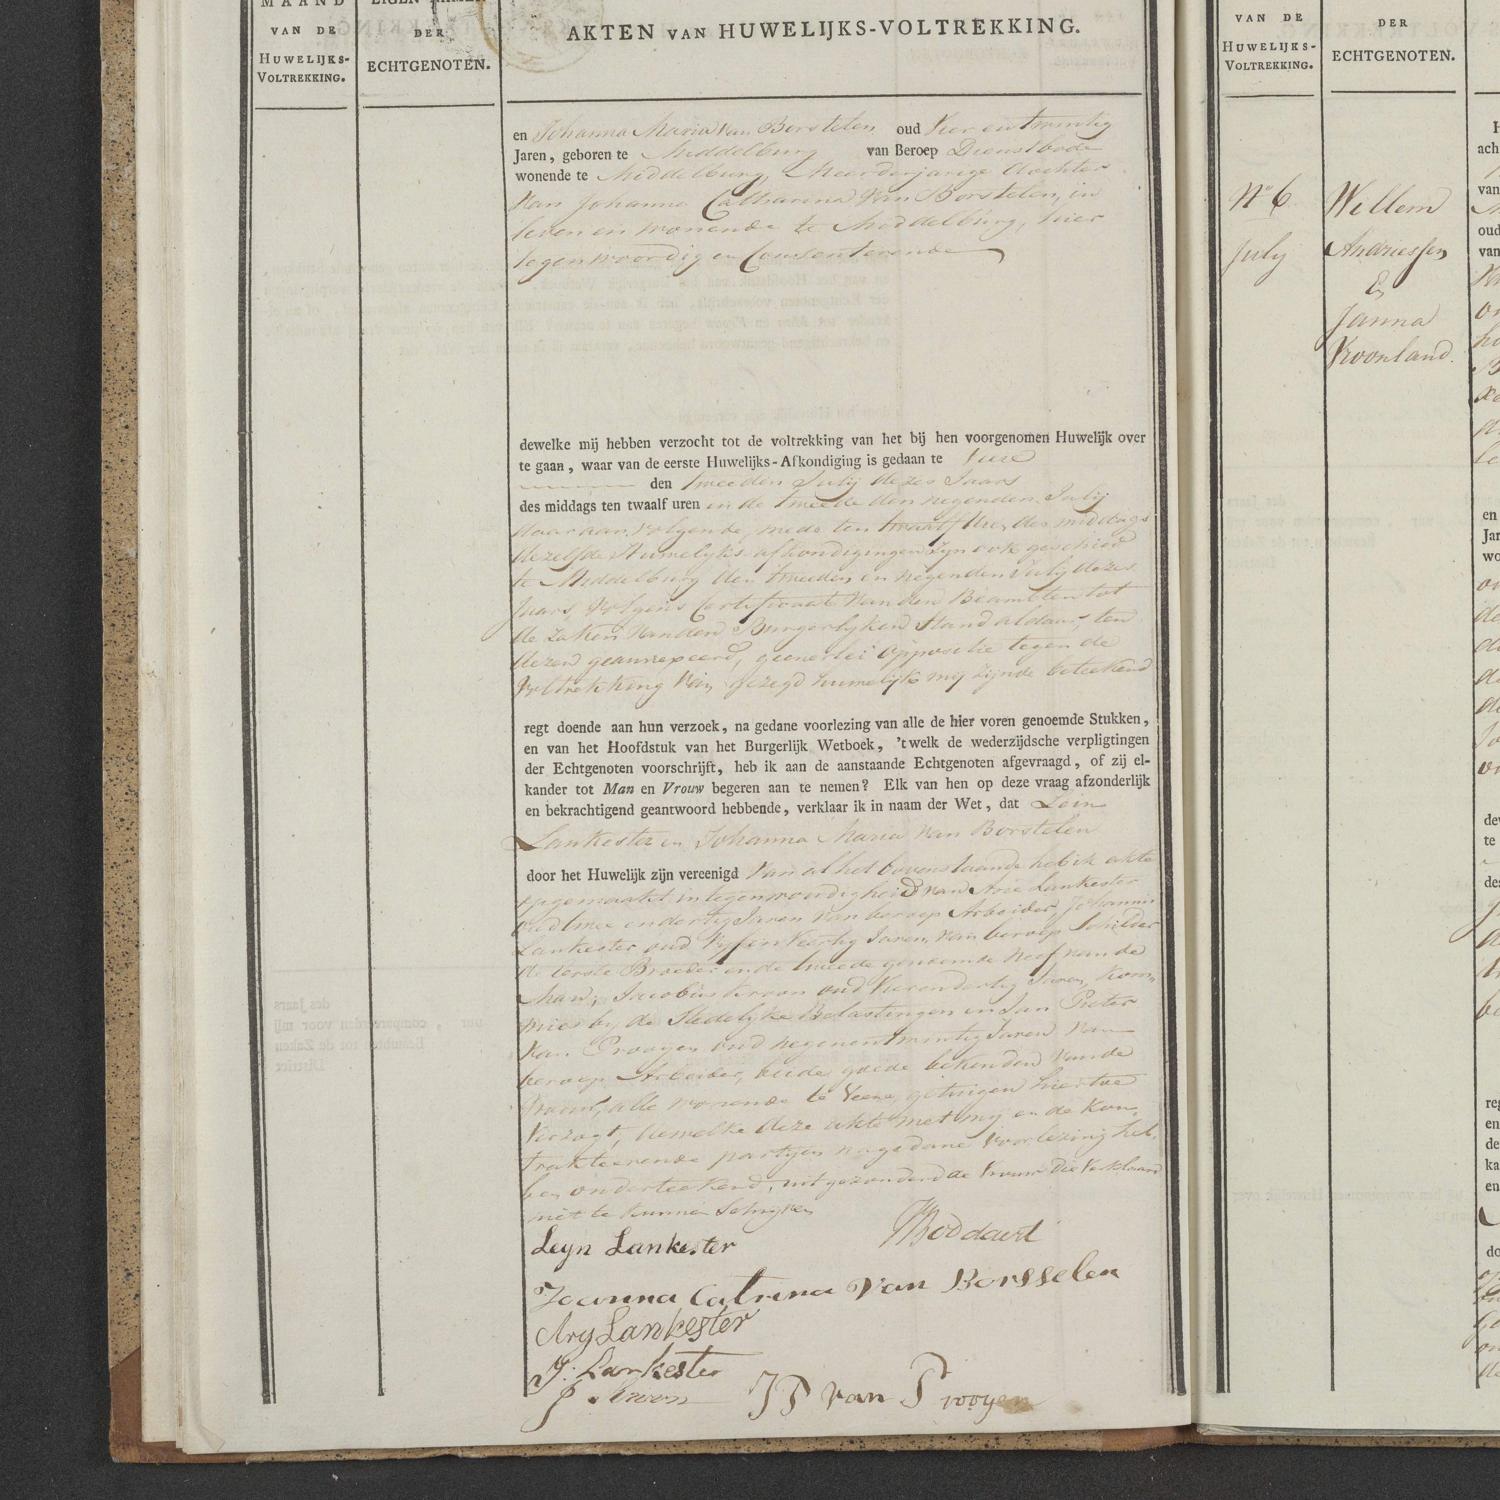 MAAND
VAN DE
HUWELIJKS-
VOLTREKKING.
EIGEN NAMEN
DER
ECHTGENOTEN.
AKTEN VAN HUWELIJKS-VOLTREKKING.
en Johanna Maria van Borstelen oud Vier en twintig
Jaren, geboren te Middelburg van Beroep Dienstbode
wonende te Middelburg, Meerderjarige dochter
van Johanna Catharina van Borstelen, in
leven en wonende te Middelburg, hier
tegenwoordig en Consenterende
dewelke mij hebben verzocht tot de voltrekking van het bij hen voorgenomen Huwelijk over
te gaan, waar van de eerste Huwelijks-Afkondiging is gedaan te Vere
den tweeden Julij dezes Jaars
des middags ten twaalf uren en de tweede den negenden Julij
daaraanvolgende, mede ten twaalf Ure, des middags
dezelfde Huwelijks afkondigingen zyn ook geschied
te Middelburg den tweeden en negenden Julij dezes
Jaars, volgens Certificaat van den Beambten tot
de zaken van den Burgerlyken Stand aldaar, ten
dezen geannexeerd, geenerlei oppositie tegen de
voltrekking van gezegd huwelijk my zijnde beteekend
regt doende aan hun verzoek, na gedane voorlezing van alle de hier voren genoemde Stukken,
en van het Hoofdstuk van het Burgerlijk Wetboek, 't welk de wederzijdsche verpligtingen
der Echtgenoten voorschrijft, heb ik aan de aanstaande Echtgenoten afgevraagd, of zij el-
kander tot Man en Vrouw begeren aan te nemen? Elk van hen op deze vraag afzonderlijk
en bekrachtigend geantwoord hebbende, verklaar ik in naam der Wet, dat Lein
Lankester en Johanna Maria van Borstelen
door het Huwelijk zijn vereenigd Van al het bovenstaande heb ik akte
opgemaakt in tegenwoordigheid van Arie Lankester
oud twee en dertig Jaren van beroep Arbeider, Johannis
Lankester oud Vyf en Veertig Jaren, van beroep Schilder
de eerste Broeder en de tweede genoemde neef van de
Man, Jacobus oud Vierendertig Jaren, Kom-
mies by de Stedelyke Belastingen en Jan Pieter
van Prooyen oud negenentwintig Jaren van
beroep Arbeider, beide goede bekenden van de
Vrouw, alle wonende te Veere, getuigen hiertoe
verzogt, dewelke deze akte met my en de Kon-
trakteerende partyen na gedane Voorlezing heb-
ben onderteekend, uitgezonderd de Vrouw die verklaard
niet te kunnen Schryven
Leyn Lankester
Boddaert
Joanna Catrina Van Borsselen
Ary Lankester
J: Lankester
JP van Prooyen
VAN DE
HUWELIJKS-
VOLTREKKING.
DER
ECHTGENOTEN.
No 6
July
Willem
Andriessen
En
Janna
Kroonland.